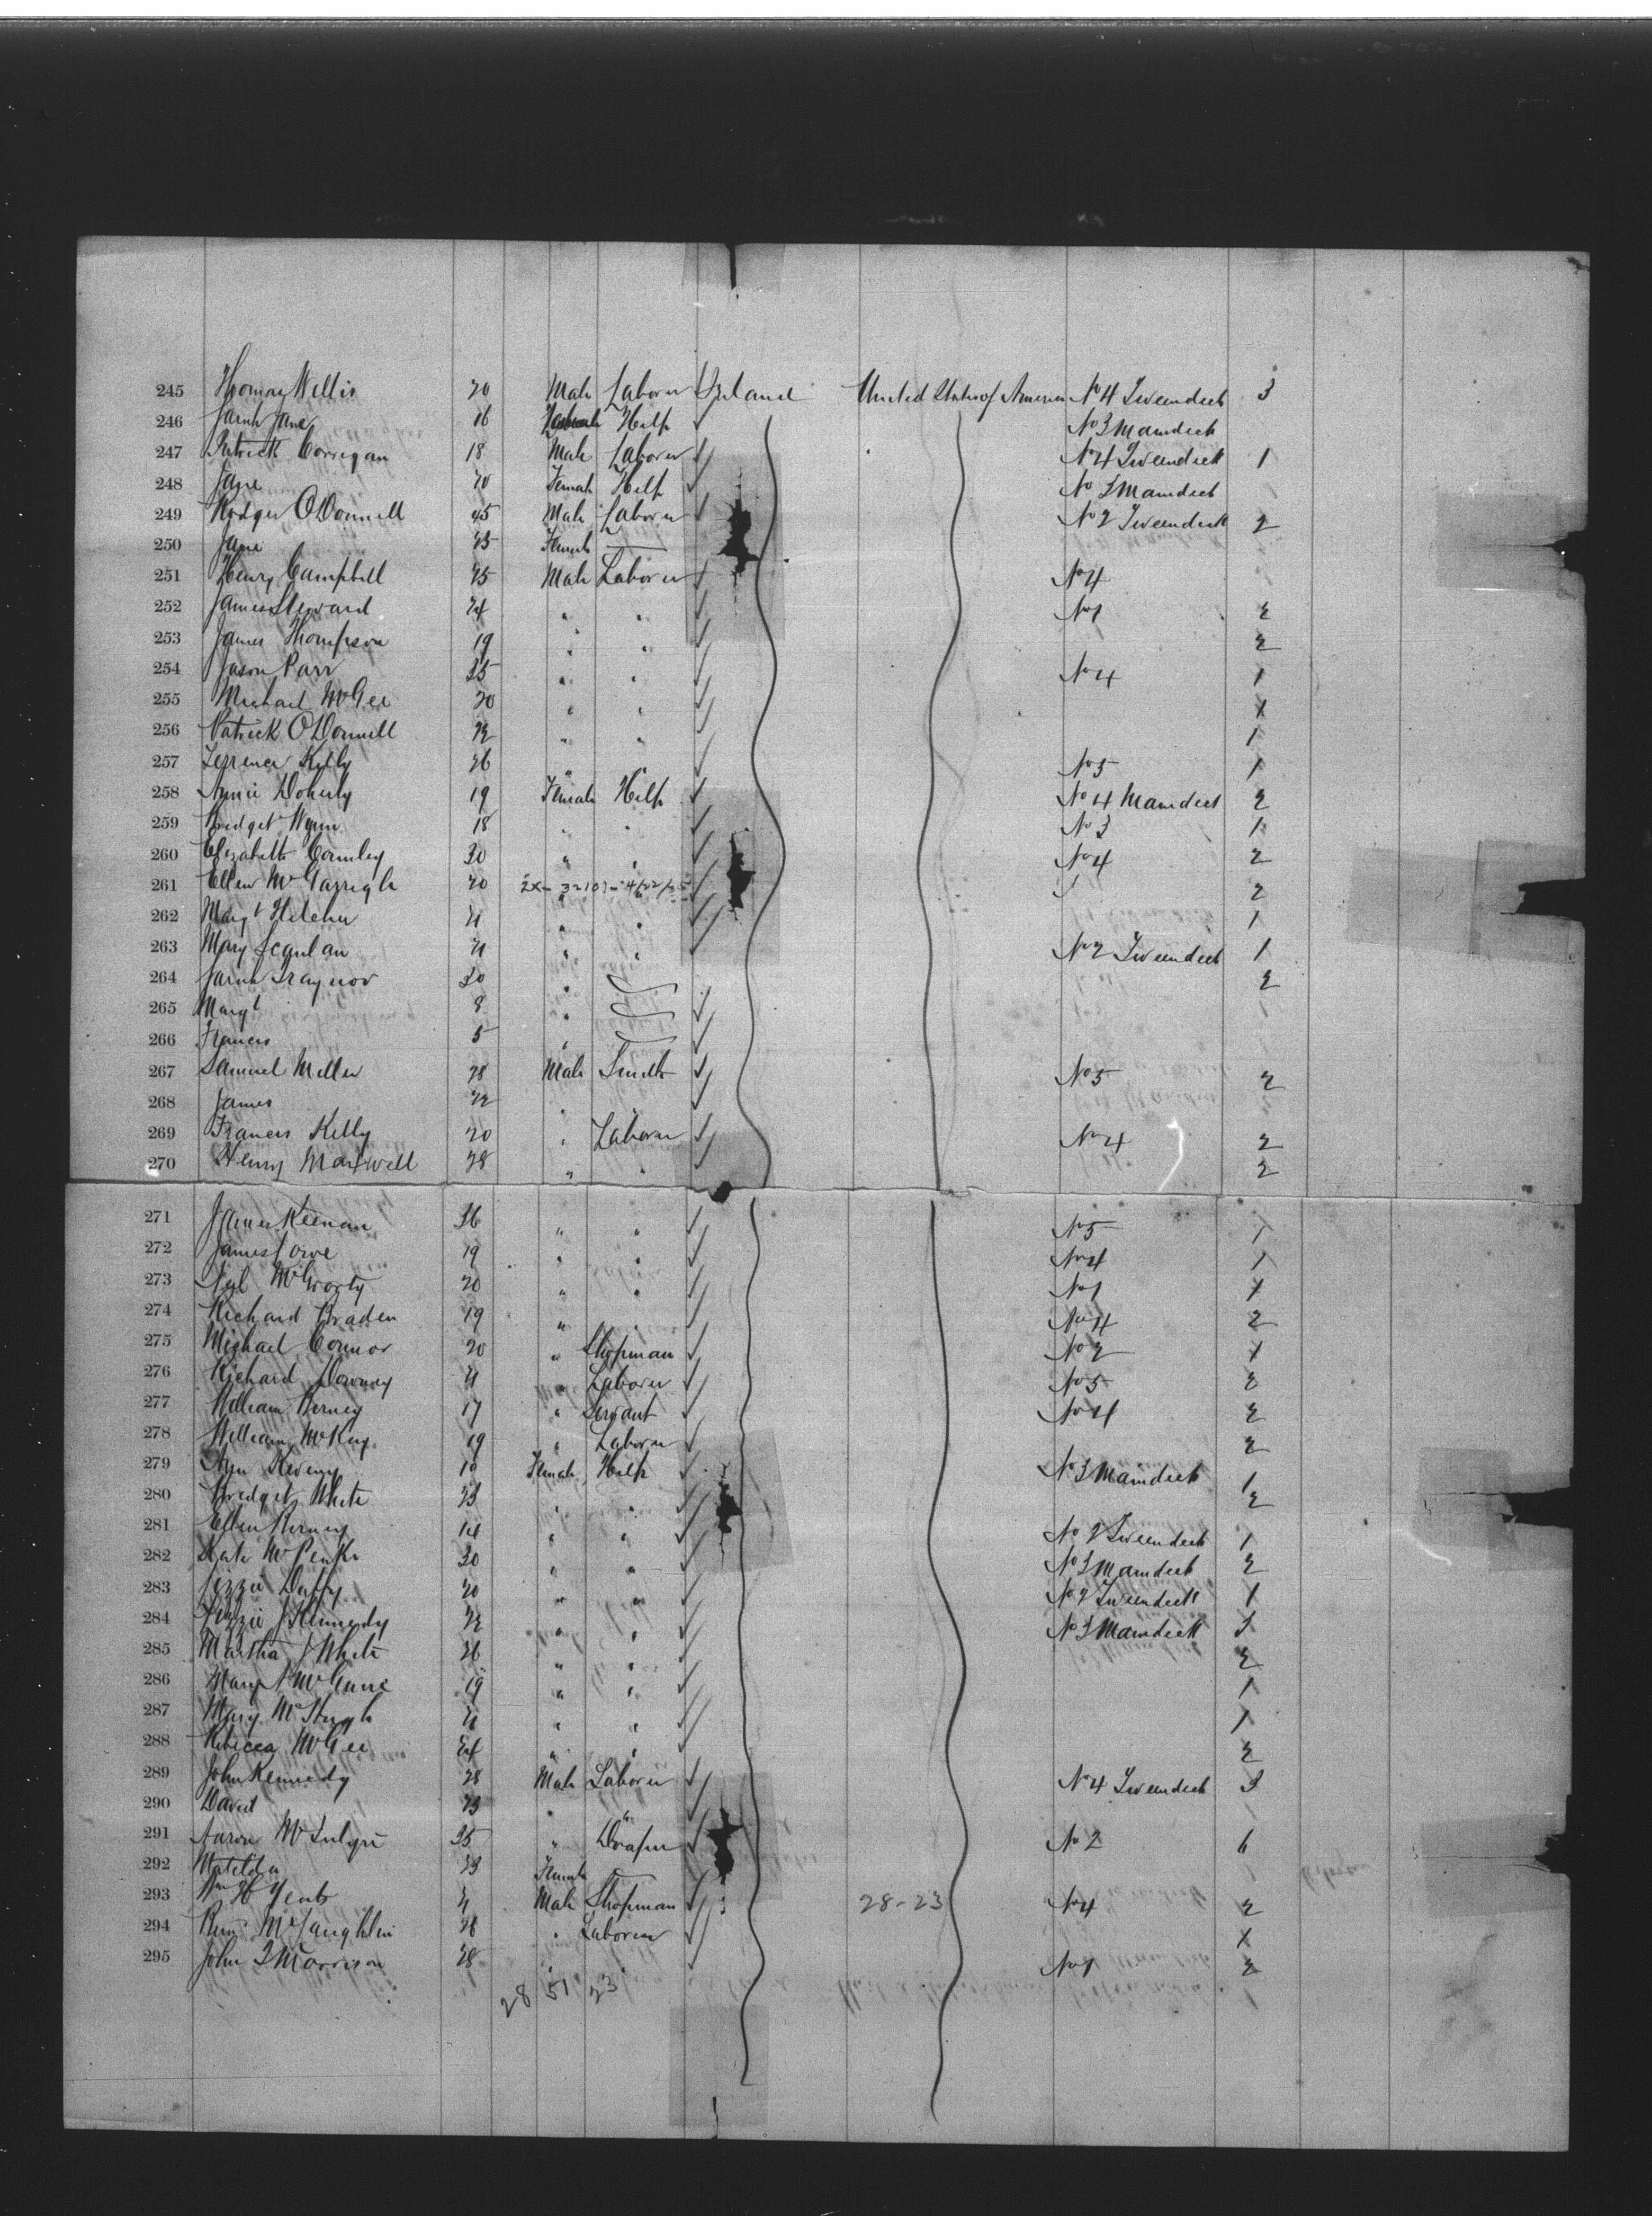 245 Thomas Willis 20 Male Laborer Ireland United States of America No 4 Tweendeck 3
246 Sarah Jane 16 Female Help No 3 Maindeck
247 Patrick Corrigan 18 Male Laborer No 4 Tweendeck 1
248 Jane 20 Female Help No 3 Maindeck
249 Rodger O'Donnell 45 Male Laborer No 2 Tweendeck 2
250 Jane 45 Female
251 Henry Campbell 25 Male Laborer No 4
252 James Steward 24 " " No 1 2
253 James Thompson 19 " " 2
254 Jason Parr 35 " " No 4 1
255 Michael McGee 20 " " 1
256 Patrick O'Donnell 22 " " 1
257 Terrence Kelly 26 " " No 5 1
258 Annie Doherty 19 Female Help No 4 Maindeck 2
259 Bridget Wynn 18 " " No 3 1
260 Elizabeth Cormley 30 " " No 4 2
261 Ellen McGarrigle 20 2x-3210 - 4/22/ 2
262 Margt 21 " " 1
263 Mary Scanlan 21 " " No 2 Tweendeck 1
264 Sarah Traynor 30 " 2
265 Margt 8 "
266 Francis 5 "
267 Samuel Miller 28 Male Smith No 5 2
268 James 22 " "
269 Francis Kelly 20 " Laborer No 4 2
270 Henry Maxwell 28 " " 2
271 James Keenan 36 " " No 5 1
272 James Lowe 19 " " No 4 1
273 McGroorty 20 " " No 1 1
274 Richard Braden 19 " " No 4 2
275 Michael Connor 20 " Shopman No 2 1
276 Richard Downey 21 " Laborer No 5 2
277 William Kerney 17 " Servant No 4 2
278 William McKay 19 " Laborer 2
279 Ann 18 Female Help No 3 Maindeck 1
280 Bridget White 23 " " 2
281 Ellen Kerney 14 " " No 2 Tweendeck 1
282 Kate 30 " " No 3 Maindeck 2
283 Lizzie Duffy 20 " " No 2 Tweendeck 1
284 Lizzie J Kennedy 22 " " No 3 Maindeck 3
285 Martha J White 26 " " 2
286 Mary A McGuire 19 " " 1
287 Mary McHugh 21 " " 1
288 Rebecca McGee 24 " " 2
289 John Kennedy 28 Male Laborer No 4 Tweendeck 3
290 David 23 " "
291 Aaron McIntyre 35 " Draper No 2 6
292 Matilda 23 Female
293 Wm H 21 Male Shopman 28-23 No 4 2
294 McLaughlin 26 " Laborer 1
295 John T Morrison 28 " " No 1 2
28 51 23